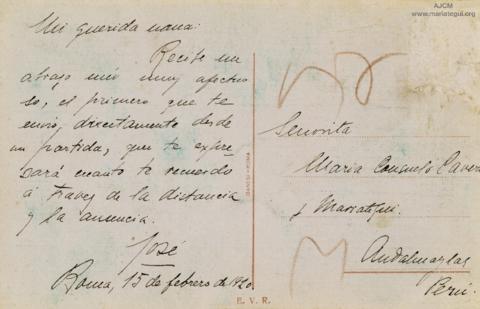 AJCM
www.mariategui.org
Mi querida nana:
Recibe un
abrazo mío muy afectuo
so, el primero que te
envío, directamente desde
mi partida, que te expre-
sará cuanto te recuerdo
á través de la distancia
y la ausencia.
José
Roma, 15 de febrero de 1920.
Señorita
María Consuelo Cavero
y Mariátegui.
Andahuaylas
Perú.
E. V. R.